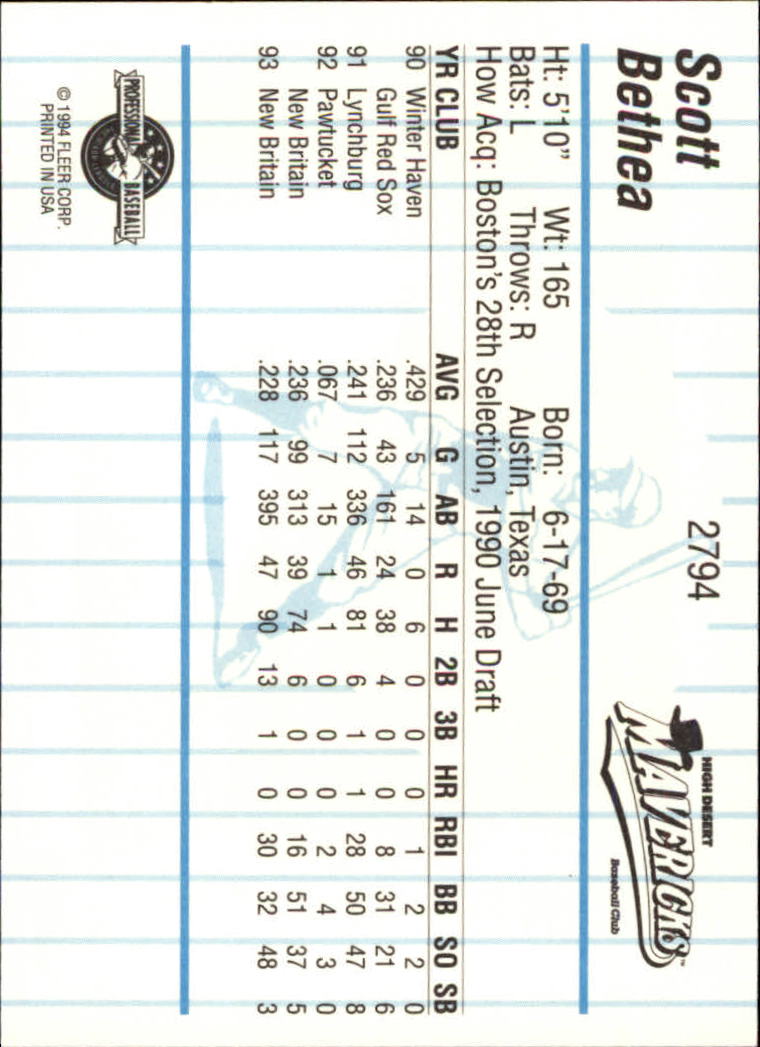 Scott
Bethea
2794
HIGH DESERT
MAVERICKS™
Baseball Club
Ht: 5'10" Wt: 165 Born: 6-17-69
Bats: L Throws: R Austin, Texas
How Acq: Boston's 28th Selection, 1990 June Draft
YR CLUB AVG G AB R H 2B 3B HR RBI BB SO SB
90 Winter Haven .429 5 14 0 6 0 0 0 1 2 2 0
Gulf Red Sox .236 43 161 24 38 4 0 0 8 31 21 6
91 Lynchburg .241 112 336 46 81 6 1 1 28 50 47 8
92 Pawtucket .067 7 15 1 1 0 0 0 2 4 3 0
New Britain .236 99 313 39 74 6 0 0 16 51 37 5
93 New Britain .228 117 395 47 90 13 1 0 30 32 48 3
PROFESSIONAL BASEBALL
© 1994 FLEER CORP.
PRINTED IN USA